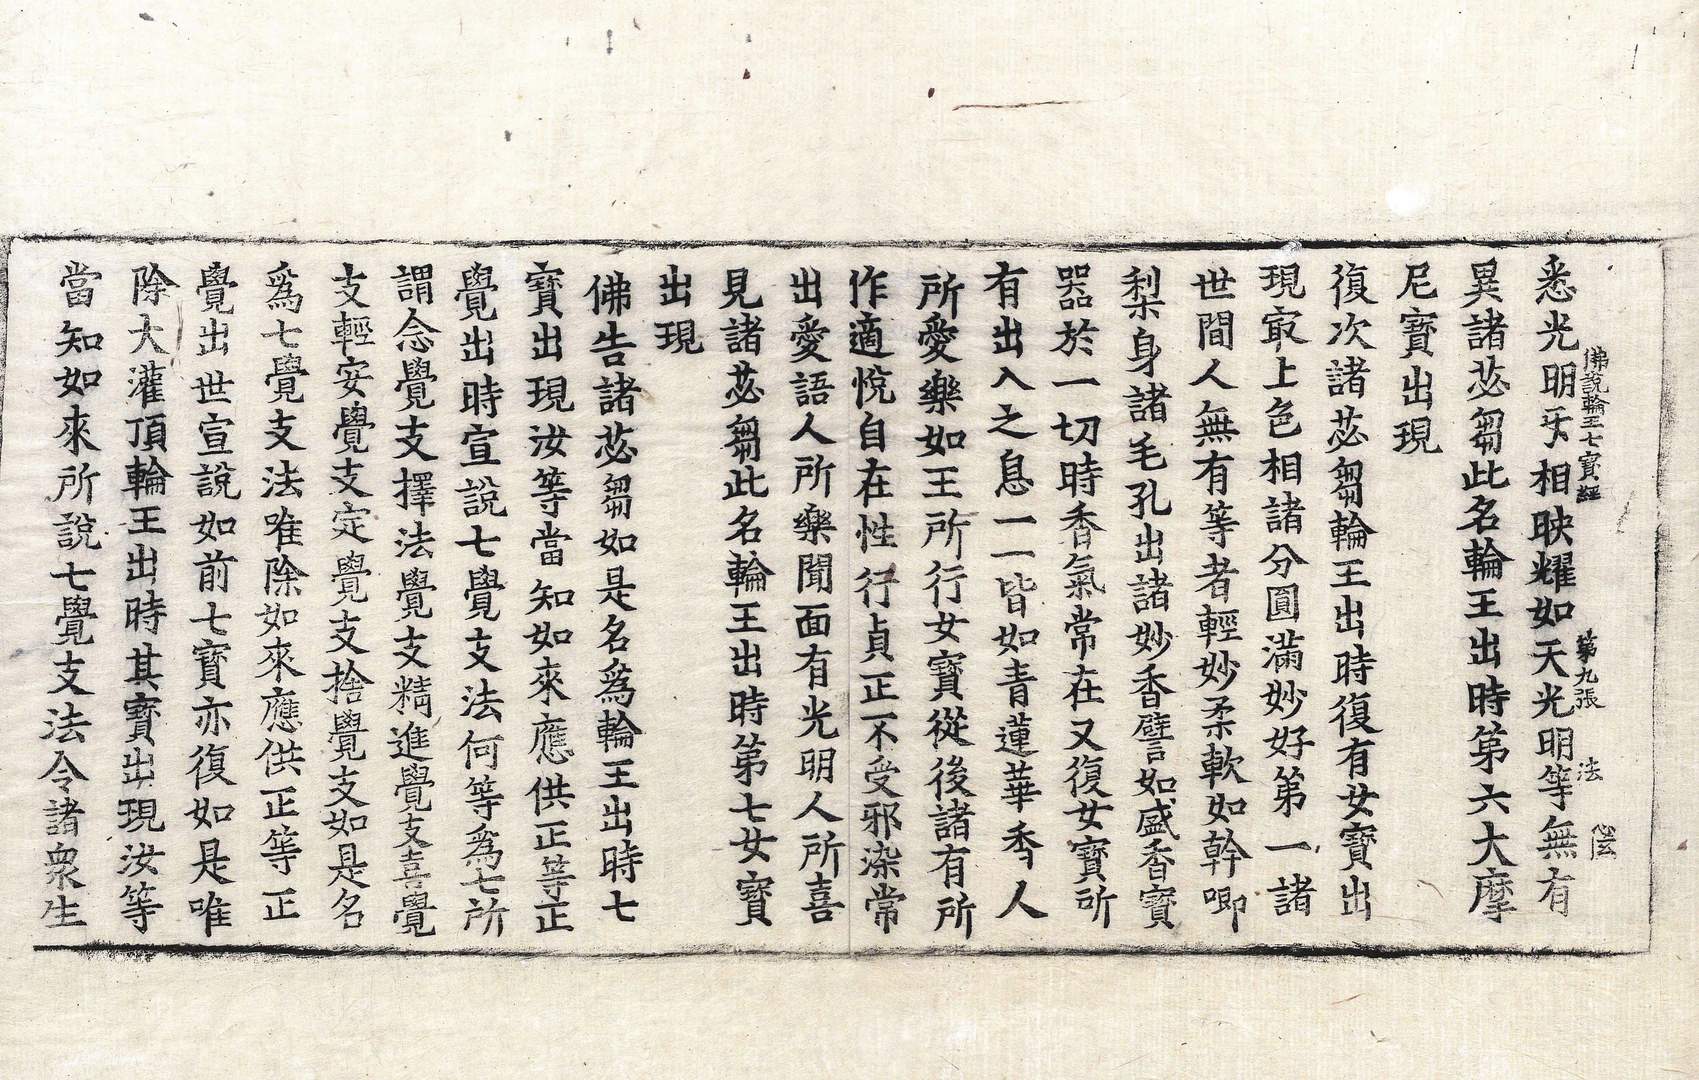 佛說輪王七寶經 第九張 法
悉光明牙相映耀如天光明等無有
異諸苾芻此名輪王出時第六大摩
尼寶出現
復次諸苾芻輪王出時復有女寶出
現㝡上色相諸分圓滿妙好第一諸
世間人無有等者輕妙柔軟如幹唧
梨身諸毛孔出諸妙香譬如盛香寶
器於一切時香氣常在又復女寶所
有出入之息一一皆如青蓮華香人
所愛樂如王所行女寶從後諸有所
作適悅自在性行貞正不受邪染常
出愛語人所樂聞面有光明人所喜
見諸苾芻此名輪王出時第七女寶
出現
佛告諸苾芻如是名為輪王出時七
寶出現汝等當知如來應供正等正
覺出時宣說七覺支法何等為七所
謂念覺支擇法覺支精進覺支喜覺
支輕安覺支定覺支捨覺支如是名
為七覺支法唯除如來應供正等正
覺出世宣說如前七寶亦復如是唯
除大灌頂輪王出時其寶出現汝等
當知如來所說七覺支法令諸衆生